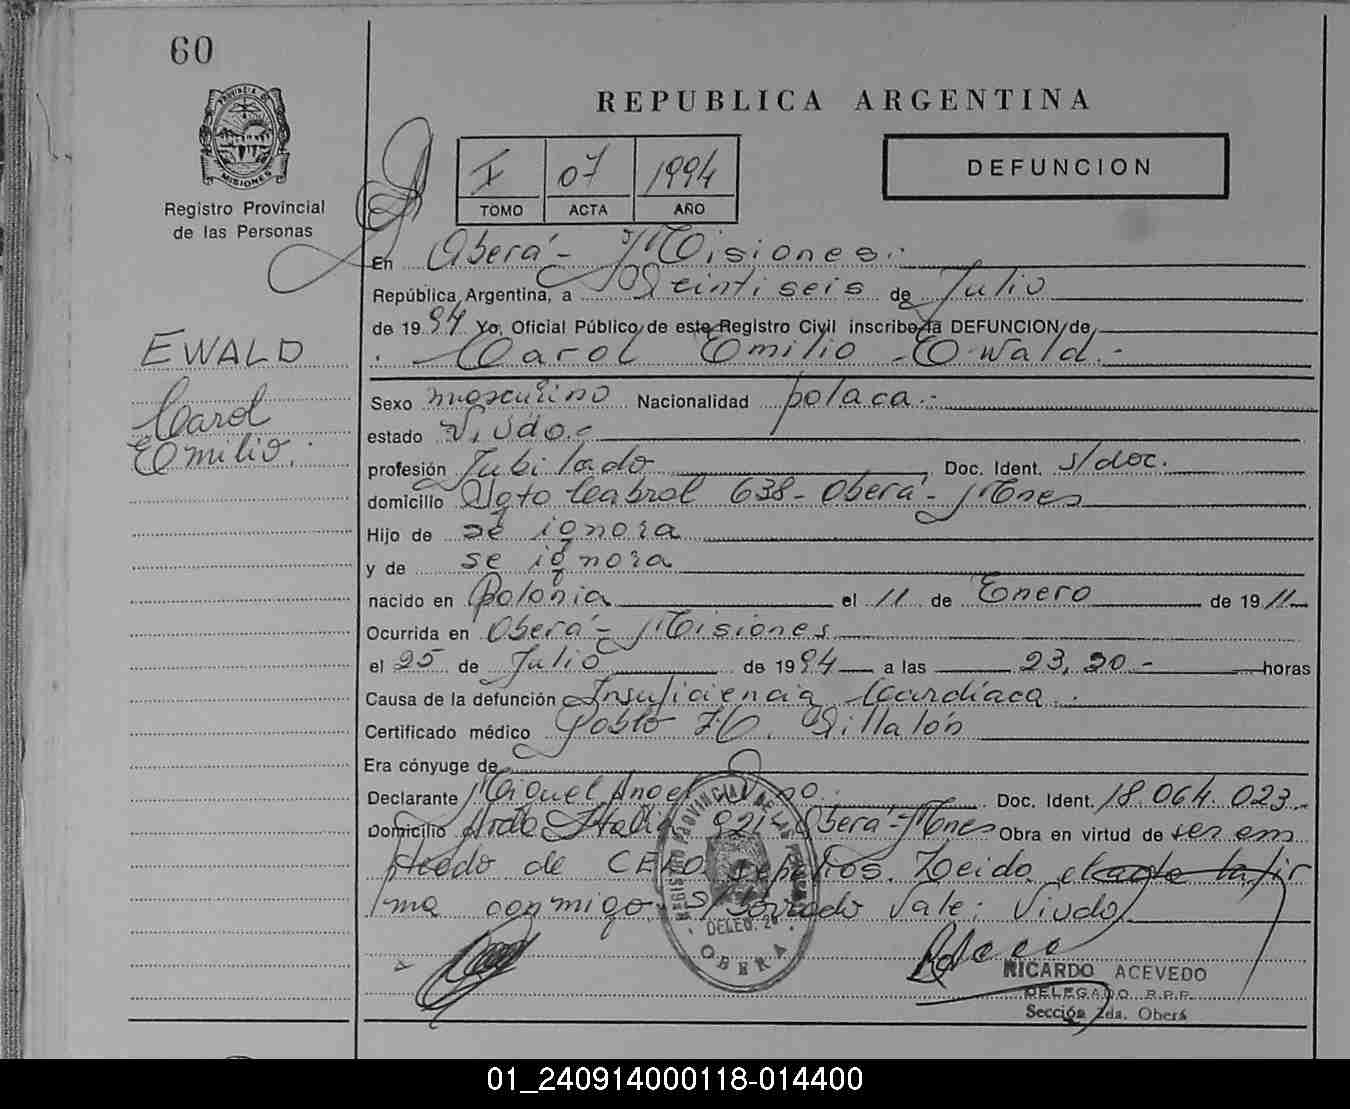 60
PROVINCIA DE
MISIONES
Registro Provincial
de las Personas
REPUBLICA ARGENTINA
I 07 1994
TOMO ACTA AÑO
DEFUNCION
En Oberá - Misiones.
República Argentina, a Veintiseis de Julio
de 1994 Yo, Oficial Público de este Registro Civil inscribo la DEFUNCION de
Carol Emilio Ewald.-
EWALD
Carol
Emilio.
Sexo masculino Nacionalidad polaca.-
estado Viudo.-
profesión Jubilado Doc. Ident. s/doc.
domicilio Sgto Cabral 638 - Oberá - Mnes
Hijo de se ignora
y de se ignora
nacido en Polonia el 11 de Enero de 1911
Ocurrida en Oberá - Misiones
el 25 de Julio de 1994 a las 23,20 - horas
Causa de la defunción Insuficiencia Cardíaca.
Certificado médico Pablo Villalón
Era cónyuge de
Declarante Miguel Angel Doc. Ident. 18.064.023.-
Domicilio Avda Italia 921 - Oberá - Mnes Obra en virtud de ser em
pleado de sepelios. Leido el acta la fir
ma conmigo S/borrado Vale: Viudo
REGISTRO PROVINCIAL DE LAS PERSONAS
DELEG. 2ª
OBERA
RICARDO ACEVEDO
DELEGADO R.P.P.
Sección 2da. Oberá
01_240914000118-014400